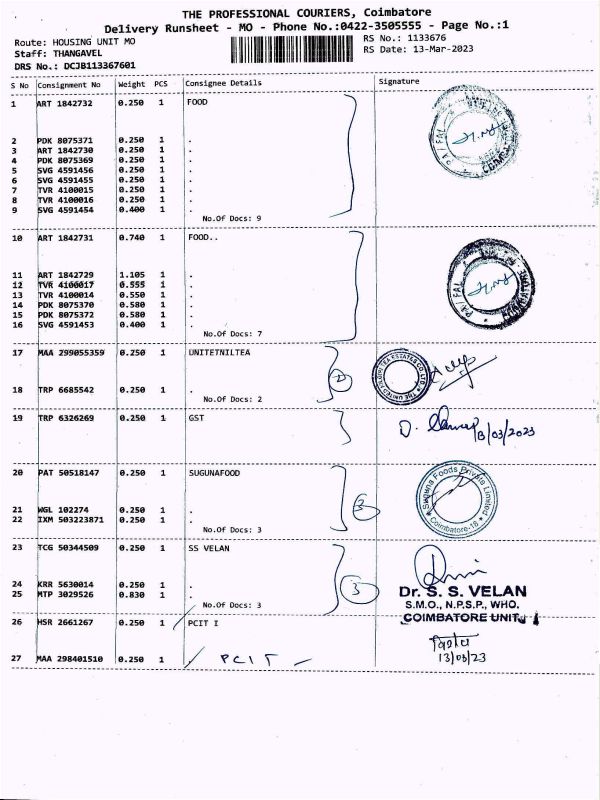 THE PROFESSIONAL COURIERS, Coimbatore
Delivery Runsheet - MO - Phone No.:0422-3505555 - Page No.:1
Route: HOUSING UNIT MO
RS No.: 1133676
Staff: THANGAVEL
RS Date: 13-Mar-2023
DRS No.: DCJB113367601
S No Consignment No Weight PCS Consignee Details Signature
1 ART 1842732 0.250 1 FOOD
2 PDK 8075371 0.250 1 .
3 ART 1842730 0.250 1 .
4 PDK 8075369 0.250 1 .
5 SVG 4591456 0.250 1 .
6 SVG 4591455 0.250 1 .
7 TVR 4100015 0.250 1 .
8 TVR 4100016 0.250 1 .
9 SVG 4591454 0.400 1 .
No.Of Docs: 9
PA / FAL
10 ART 1842731 0.740 1 FOOD..
11 ART 1842729 1.105 1 .
12 TVR 4100017 0.555 1 .
13 TVR 4100014 0.550 1 .
14 PDK 8075370 0.580 1 .
15 PDK 8075372 0.580 1 .
16 SVG 4591453 0.400 1 .
No.Of Docs: 7
PA / FAL
17 MAA 299055359 0.250 1 UNITETNILTEA
18 TRP 6685542 0.250 1 .
No.Of Docs: 2
2
THE UNITED NILGIRI TEA ESTATES CO LTD
19 TRP 6326269 0.250 1 GST
13/03/2023
20 PAT 50518147 0.250 1 SUGUNAFOOD
21 WGL 102274 0.250 1 .
22 IXM 503223871 0.250 1 .
No.Of Docs: 3
3
Suguna Foods Private Limited
Coimbatore-18
23 TCG 50344509 0.250 1 SS VELAN
24 KRR 5630014 0.250 1 .
25 MTP 3029526 0.830 1 .
No.Of Docs: 3
3
Dr. S. S. VELAN
S.M.O., N.P.S.P., WHO.
COIMBATORE UNIT
26 HSR 2661267 0.250 1 PCIT I
27 MAA 298401510 0.250 1 PCIT
13/03/23